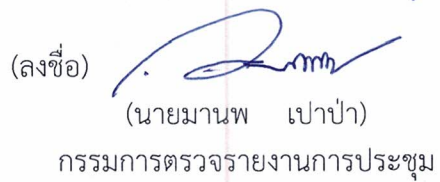 (ลงชื่อ)
(นายมานพ เปาป่า)
กรรมการตรวจรายงานการประชุม